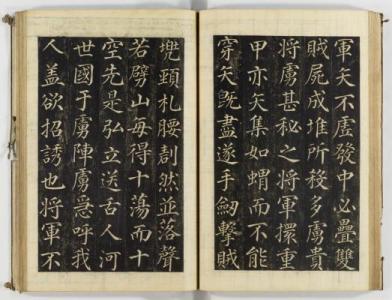 軍矢不虛發中必疊雙
賊屍成堆所殺多虜貴
將虜甚秘之將軍擐重
甲亦矢集如蝟而不能
穿矢旣盡遂手劒擊賊
兠頸札腰劃然並落聲
若劈山每得十蕩而十
空先是弘立送舌人河
世國于虜陣虜急呼我
人盖欲招誘也將軍不